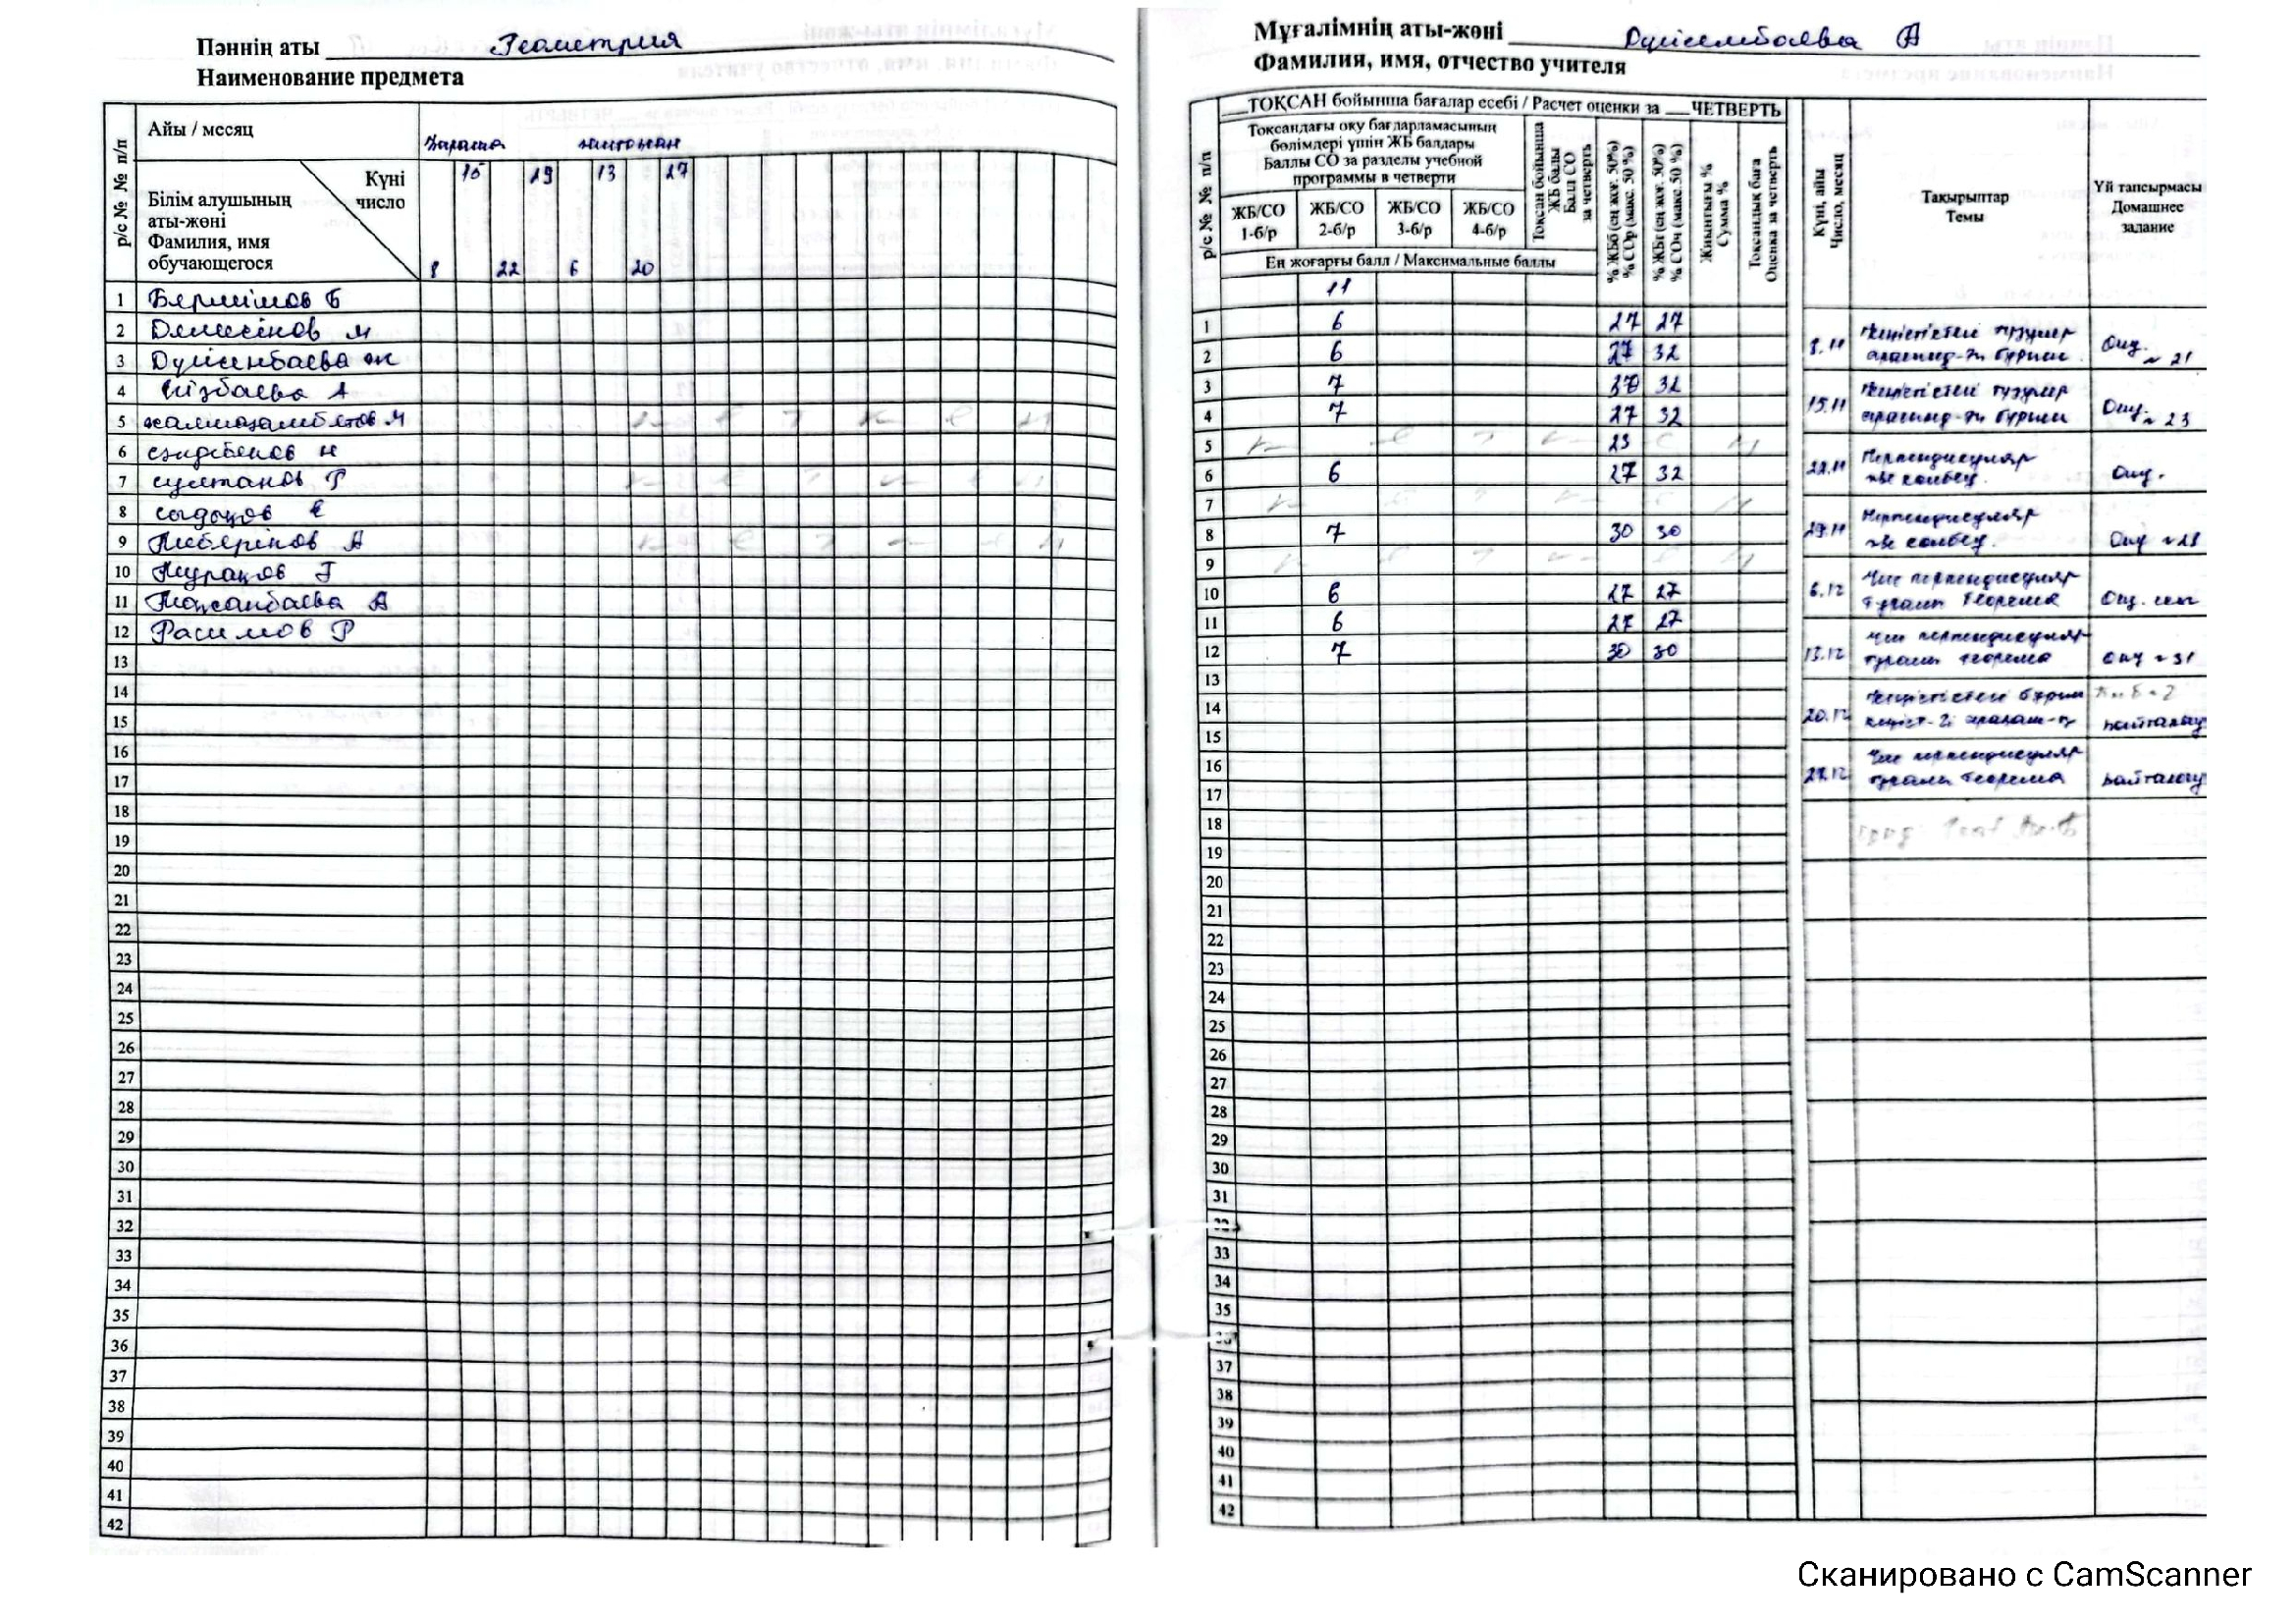 Пәннің аты Геометрия
Наименование предмета
р/с № № п/п
Айы / месяц
Қараша желтоқсан
Күні
число
Білім алушының
аты-жөні
Фамилия, имя
обучающегося
15 29 13 27
8 22 6 20
1
2
3 Дүйсенбаева Ж
4
5
6
7 Султанов Р
8 Сыдықов Е
9
10 Нұрақов Г
11 Мақсанбаева А
12 Расимов Р
13
14
15
16
17
18
19
20
21
22
23
24
25
26
27
28
29
30
31
32
33
34
35
36
37
38
39
40
41
42
Мұғалімнің аты-жөні Дүйсембаева А
Фамилия, имя, отчество учителя
р/с № № п/п
ТОҚСАН бойынша бағалар есебі / Расчет оценки за ЧЕТВЕРТЬ
Тоқсандағы оқу бағдарламасының
бөлімдері үшін ЖБ балдары
Баллы СО за разделы учебной
программы в четверти
ЖБ/СО ЖБ/СО ЖБ/СО ЖБ/СО
1-б/р 2-б/р 3-б/р 4-б/р
Тоқсан бойынша
ЖБ балы
Балл СО
за четверть
% ЖБб (ең жоғ. 50%)
% СОр (макс. 50 %)
% ЖБт (ең жоғ. 50%)
% СОч (макс. 50 %)
Жиынтығы %
Сумма %
Тоқсандық баға
Оценка за четверть
Күні, айы
Число, месяц
Тақырыптар
Темы
Үй тапсырмасы
Домашнее
задание
Ең жоғарғы балл / Максимальные баллы
11
1 6 27 27
2 6 27 32
3 7 30 32
4 7 27 32
5 23
6 6 27 32
7
8 7 30 30
9
10 6 27 27
11 6 27 27
12 7 30 30
13
14
15
16
17
18
19
20
21
22
23
24
25
26
27
28
29
30
31
32
33
34
35
36
37
38
39
40
41
42
8.11 Кеңістіктегі түзулер
Оқу. № 21
15.11 Кеңістіктегі түзулер
Оқу. № 23
22.11 Перпендикуляр
және көлбеу. Оқу.
29.11 Перпендикуляр
және көлбеу. Оқу № 28
6.12 Үш перпендикуляр
туралы теорема Оқу.
13.12 Үш перпендикуляр
туралы теорема Оқу № 31
20.12
қайталау
27.12 Үш перпендикуляр
туралы теорема қайталау
Сканировано с CamScanner